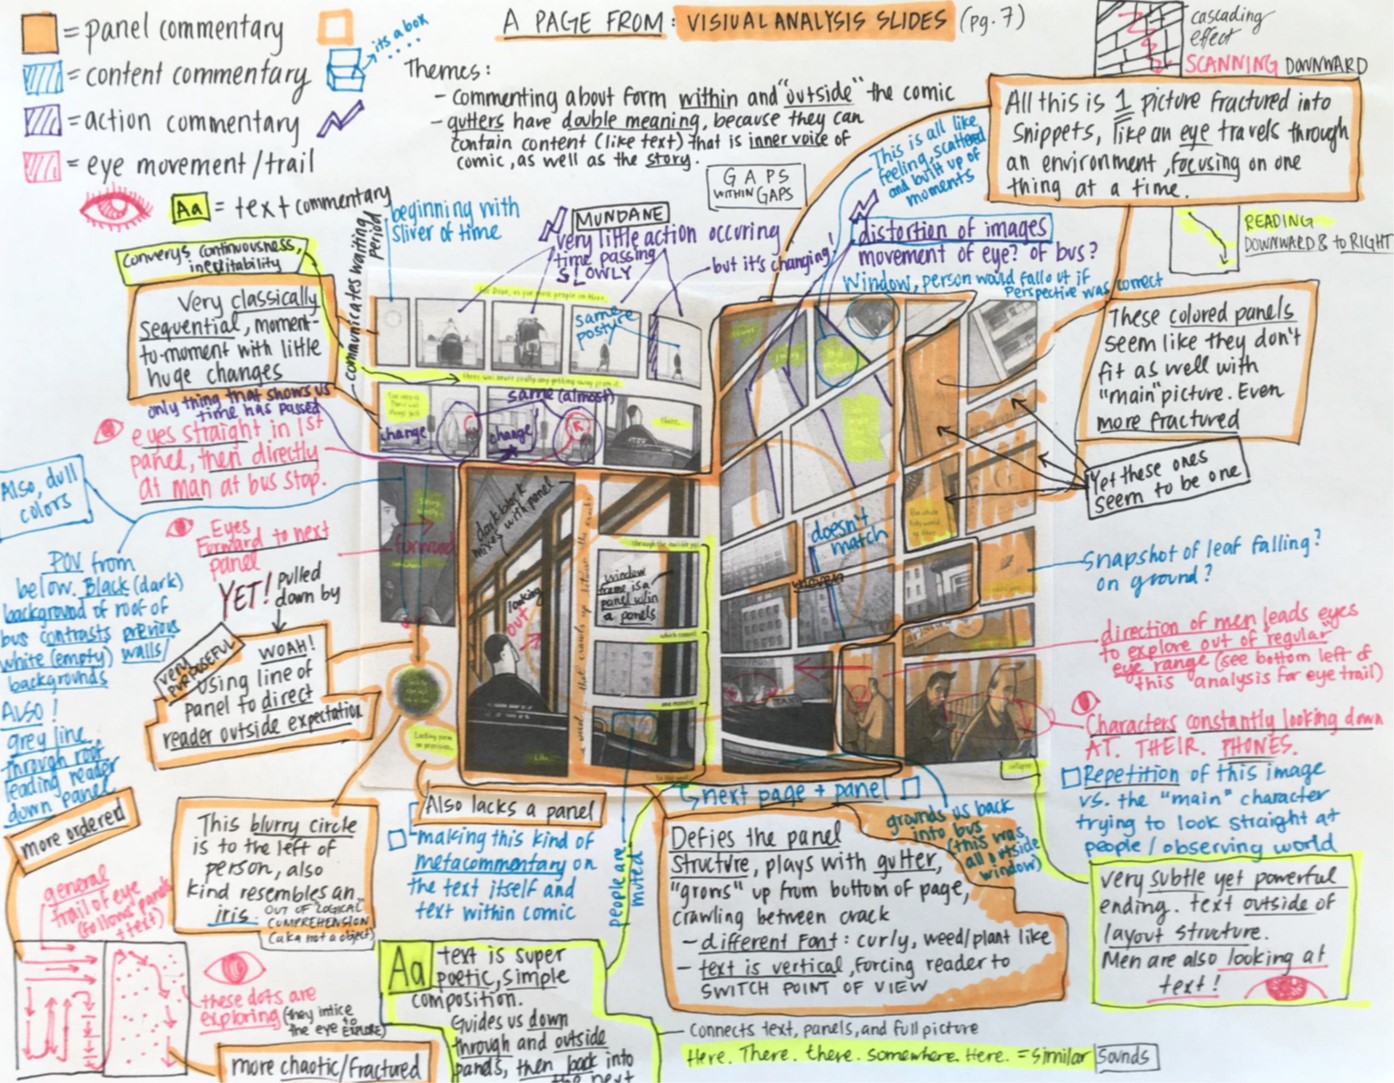 A PAGE FROM: VISIUAL ANALYSIS SLIDES (pg. 7)
= panel commentary
its a box
= content commentary
= action commentary
= eye movement/trail
Aa = text commentary
Themes:
- commenting about form within and "outside" the comic
- gutters have double meaning, because they can
contain content (like text) that is inner voice of
comic, as well as the story.
GAPS
WITHIN GAPS
cascading
effect
SCANNING DOWNWARD
All this is 1 picture fractured into
snippets, like an eye travels through
an environment, focusing on one
thing at a time.
This is all like
feeling, scattered
and built up of
moments
READING
DOWNWARD & to RIGHT
Converys continuousness,
inevitability
communicates waiting
period
beginning with
sliver of time
MUNDANE
very little action occuring
time passing
SLOWLY
but it's changing!
distortion of images
movement of eye? of bus?
Window, person would fall out if
Perspective was correct
Very classically
sequential, moment-
to-moment with little
huge changes
same
posture
These colored panels
seem like they don't
fit as well with
"main" picture. Even
more fractured
only thing that shows us
time has passed
same (almost)
change
change
eyes straight in 1st
panel, then directly
at man at bus stop.
Yet these ones
seem to be one
Also, dull
colors
Eyes
Forward to next
panel
forward
dark black
mixes with panel
looking
out
window
frame is a
panel w/in
a panels
doesn't
match
Snapshot of leaf falling?
on ground?
POV from
below. Black (dark)
background of roof of
bus contrasts previous
white (empty) walls/
backgrounds
Also!
grey line
through roof
leading reader
down panel
YET! pulled
down by
very
purposeful
WOAH!
using line of
panel to direct
reader outside expectation
direction of men leads eyes
to explore out of "regular"
eye range (see bottom left of
this analysis for eye trail)
Characters constantly looking down
AT. THEIR. PHONES.
Repetition of this image
vs. the "main" character
trying to look straight at
people/observing world
more ordered
This blurry circle
is to the left of
person, also
kind resembles an
iris. OUT OF LOGICAL
COMPREHENSION
(aka not a object)
Also lacks a panel
making this kind of
metacommentary on
the text itself and
text within comic
people are
muted
next page + panel
grounds us back
into bus
(this was
all outside
window)
Defies the panel
structure, plays with gutter,
"grows" up from bottom of page,
crawling between crack
- different font: curly, weed/plant like
- text is vertical, forcing reader to
SWITCH POINT OF VIEW
very subtle yet powerful
ending. text outside of
layout structure.
Men are also looking at
text!
general
trail of eye
(follows panels
+ text)
these dots are
exploring (they intice
the eye to EXPLORE)
more chaotic/fractured
Aa text is super
poetic, simple
composition.
Guides us down
through and outside
panels, then back into
the next
Connects text, panels, and full picture
Here. There. there. somewhere. Here. = similar sounds